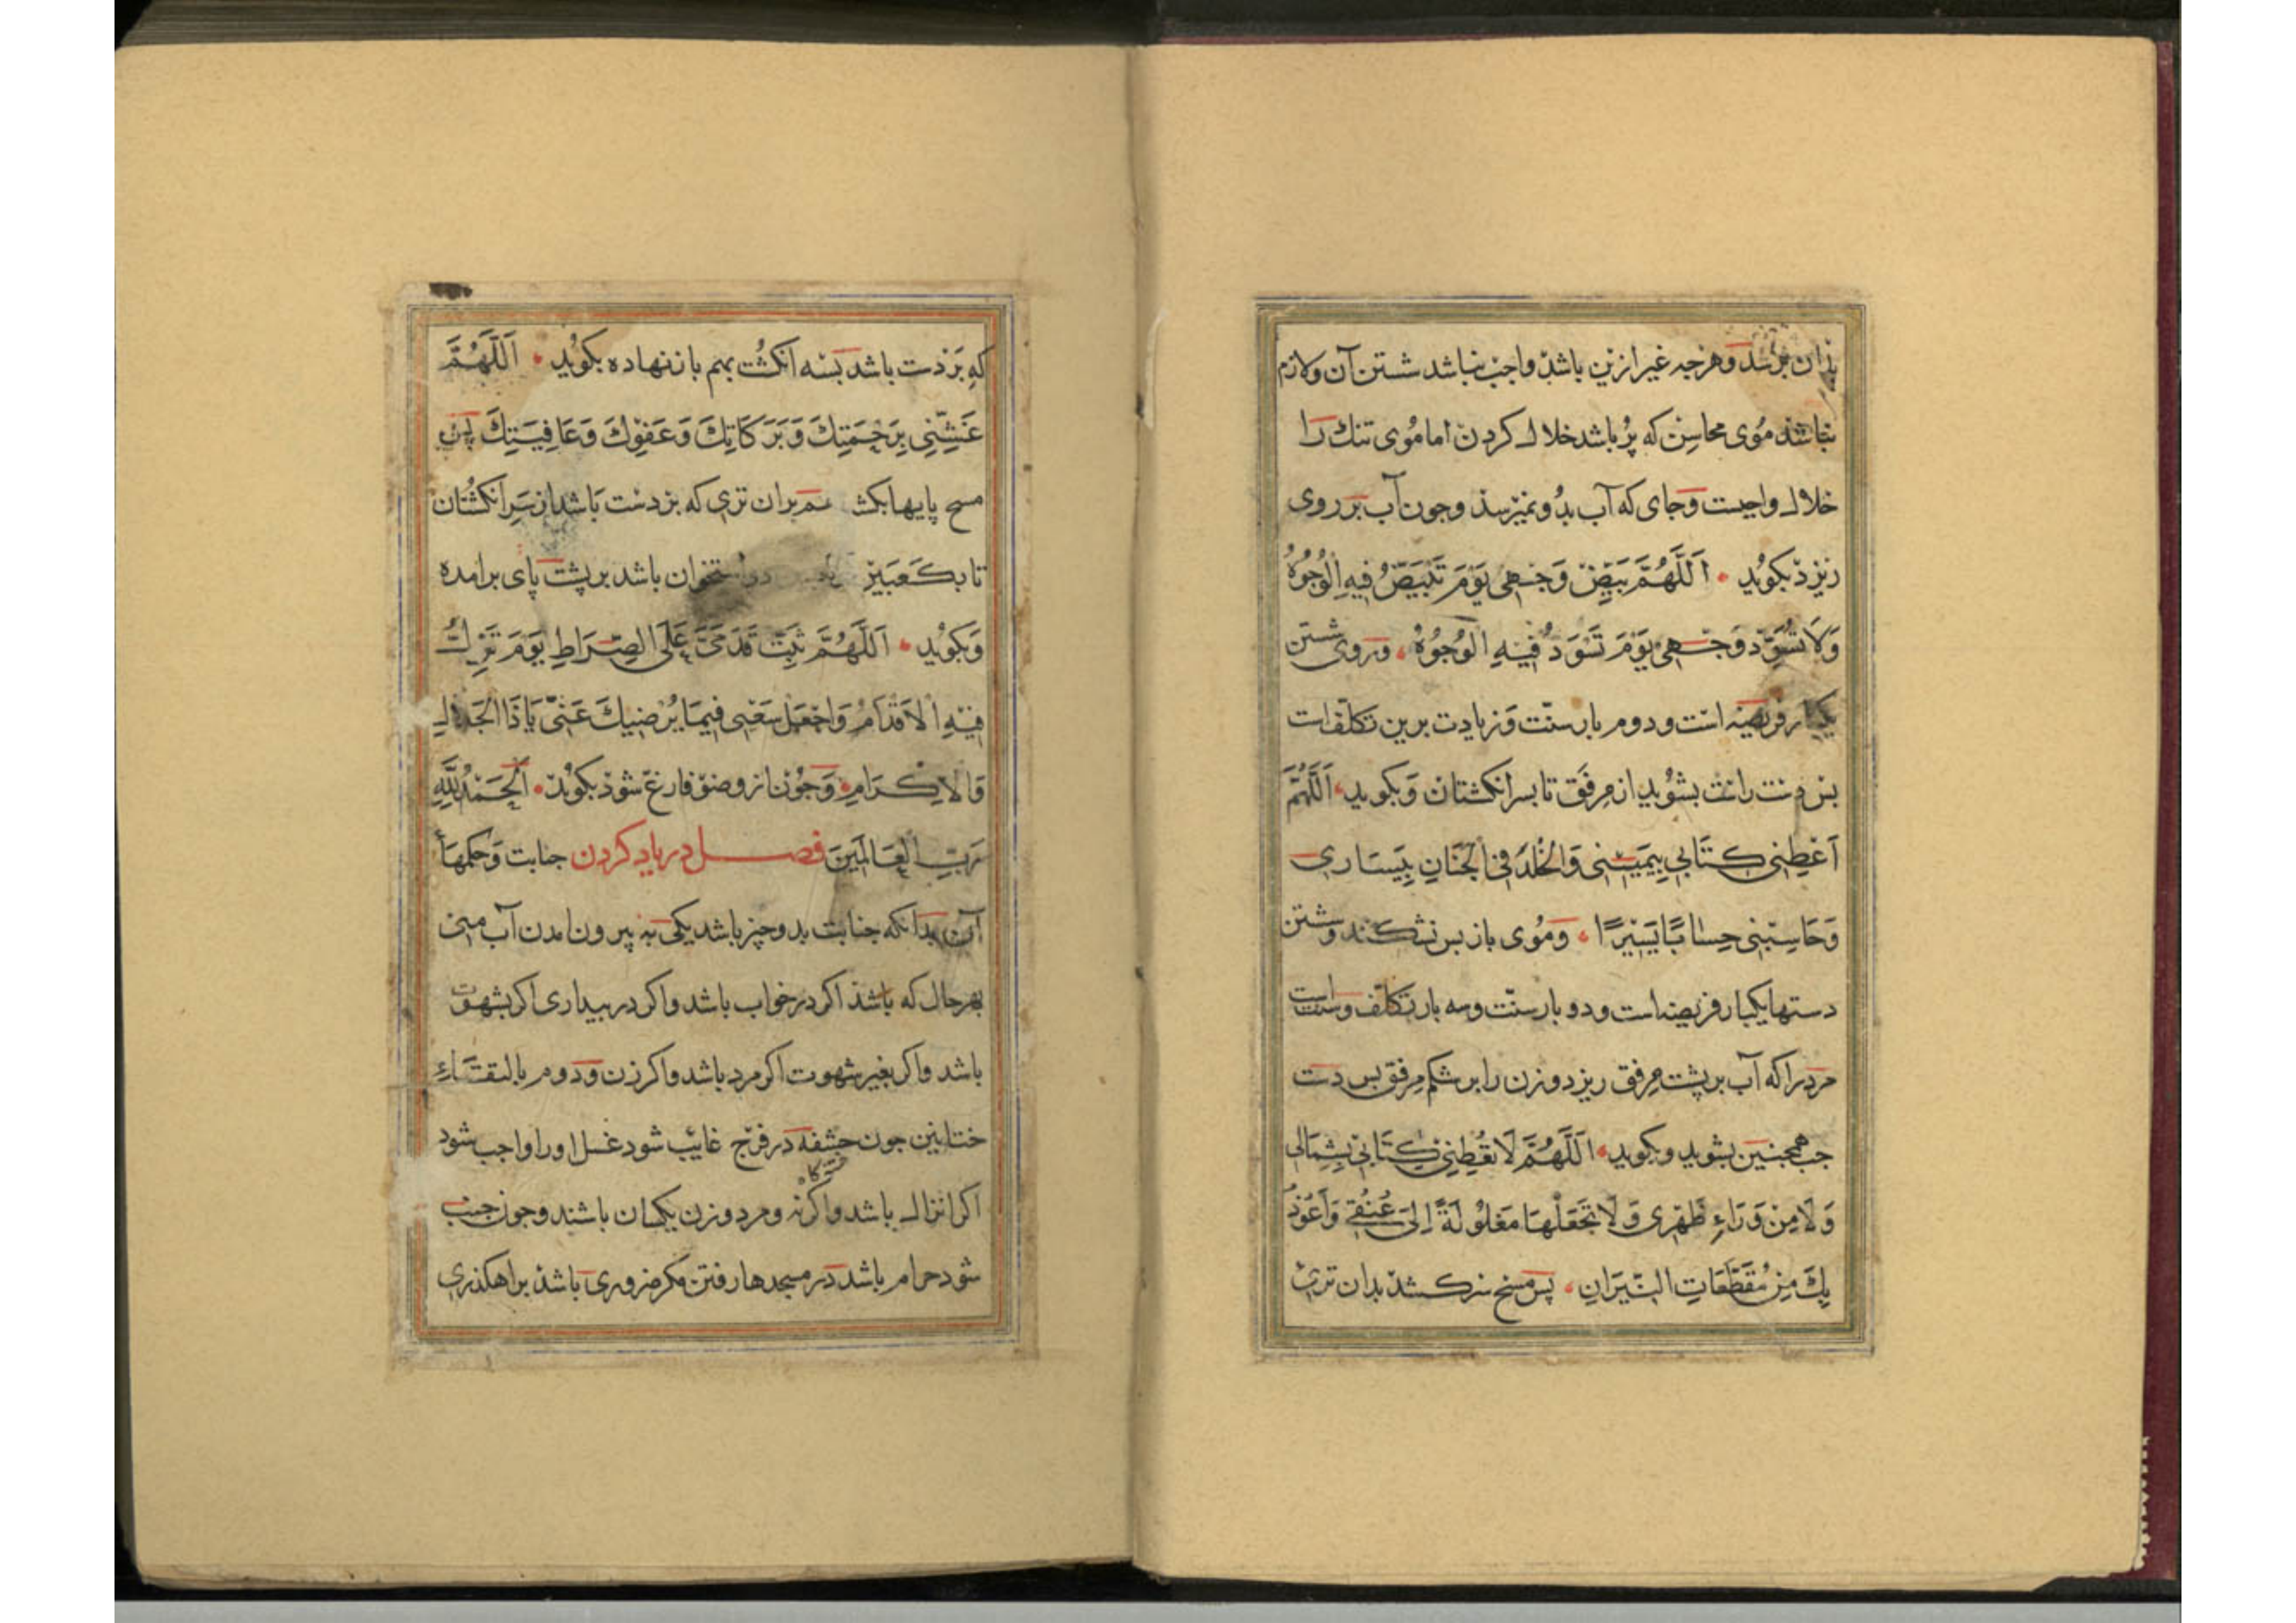 بذان برسد وهرجه غیر ازین باشد واجب نباشد شستن آن ولازم
نباشد موی محاسن که پُر باشد خلال کردن اما مُوی تنك را
خلال واجبست وجای که آب بدُو نمیرسذ وجون آب بر روی
ریزد بکوُید اَللَّهُمَّ بَيِّضْ وَجْهِي يَوْمَ تَبْيَضُّ فِيهِ الْوُجُوهُ
وَلَا تُسَوِّد وَجْهِي يَوْمَ تَسْوَدُّ فِيهِ الْوُجُوهُ وروی شستن
یکبار فریضه است ودوم بار سنّت وزیادت برین تکلّفاست
بس دست راست بشوُید از مِرفَق تا بسر انکشتان وَبکوید اَللَّهُمَّ
اَعْطِنِي كِتَابِي بِيَمِينِي وَالْخُلْدَ فِي الْجِنَانِ بِيَسَارِي
وَحَاسِبْنِي حِسَابًا يَسِيرًا ومُوی باز بس نشکند وشستن
دستها یکبار فریضه است ودو بار سنّت وسه بار تکلّف وسنت است
مرد را که آب بر پشت مِرفق ریزد وزن را بر شکم مِرفق بس دست
جب همجنین بشوید وبکوید اَللَّهُمَّ لَا تُعْطِنِي كِتَابِي بِشِمَالِي
وَلَا مِنْ وَرَاءِ ظَهْرِي وَلَا تَجْعَلْهَا مَغْلُولَةً اِلَى عُنُقِي وَاَعُوذُ
بِكَ مِنْ مُقَطَّعَاتِ النِّيرَانِ پس مسح سر کشد بدان تری
که بر دست باشد بسه انکشُت بهم باز نهاده بکوُید اَللَّهُمَّ
غَشِّنِي بِرَحْمَتِكَ وَبَرَكَاتِكَ وَعَفْوِكَ وَعَافِيَتِكَ پس
مسح پایها بکشد هم بران تری که بر دست باشد از سَر انکشُتان
تا بکعبین استخوان باشد بر پشت پای برامده
وَبکوُید اَللَّهُمَّ ثَبِّتْ قَدَمَيَّ عَلَى الصِّرَاطِ يَوْمَ تَزِلُّ
فِيهِ الْاَقْدَامُ وَاجْعَلْ سَعْيِي فِيمَا يُرْضِيكَ عَنِّي يَا ذَا الْجَلَالِ
وَالْاِكْرَامِ وَجُون از وضو فارغ شوذ بکوُید اَلْحَمْدُ لِلَّهِ
رَبِّ الْعَالَمِينَ فصل در یاد کردن جنابت وَحکمهاء
آن بدانکه جنابت بدو جیز باشد یکی به بیرون امدن آب منی
بهر حال که باشذ اکر در خواب باشد واکر در بیداری اکر بشهوت
باشد واکر بغیر شهوت اکر مرد باشد واکر زن وَدوم بالتقاءِ
ختانین جون حشفه در فرج غایب شود غسل او را واجب شود
اکر انزال باشد واکر نه ومرد وزن یکسان باشند وجون جنب
شود حرام باشد در مسجدها رفتن مکر ضروری باشذ براهکذری